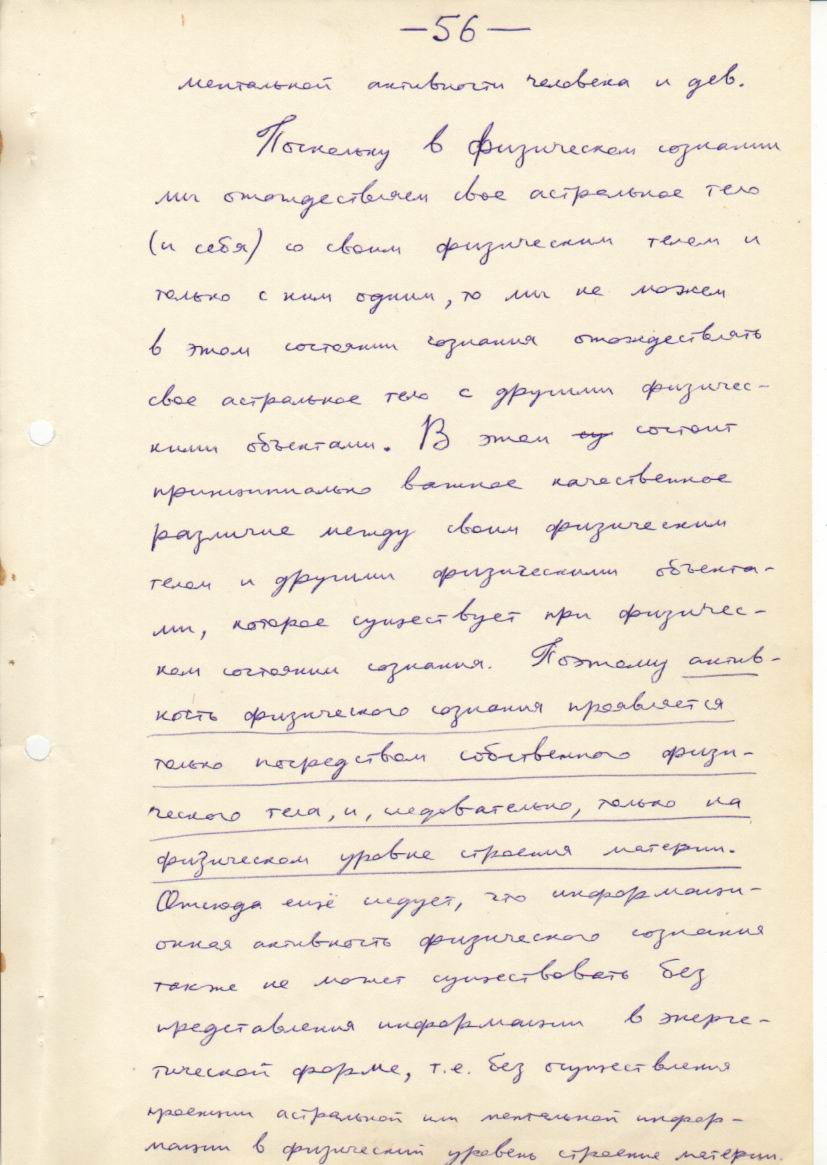 —56—
ментальной активности человека и дев.
Поскольку в физическом сознании
мы отождествляем свое астральное тело
(и себя) со своим физическим телом и
только с ним одним, то мы не можем
в этом состоянии сознания отождествлять
свое астральное тело с другими физичес-
кими объектами. В этом су состоит
принципиально важное качественное
различие между своим физическим
телом и другими физическими объекта-
ми, которое существует при физичес-
ком состоянии сознания. Поэтому актив-
ность физического сознания проявляется
только посредством собственного физи-
ческого тела, и, следовательно, только на
физическом уровне строения материи.
Отсюда ещё следует, что информаци-
онная активность физического сознания
также не может существовать без
представления информации в энерге-
тической форме, т.е. без осуществления
проекции астральной или ментальной инфор-
мации в физический уровень строение материи.